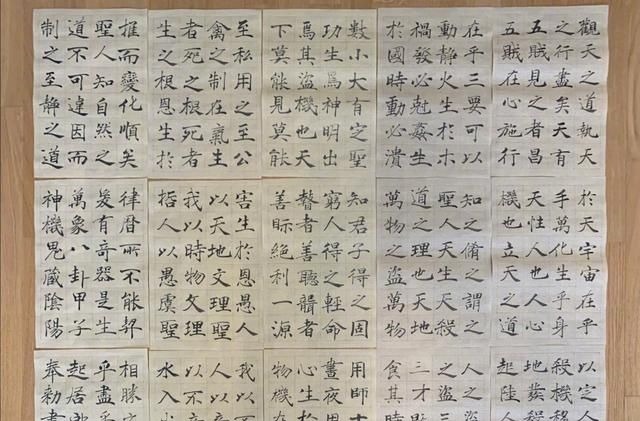 觀天之道執天
之行盡矣天有
五賊見之者昌
五賊在心施行
於天宇宙在乎
手萬化生乎身
天性人也人心
機也立天之道
以定人
殺機移
地發殺
起陸人
在乎三要可以
動靜火生於木
禍發必尅姦生
於國時動必潰
知之脩之謂之
聖人天生天殺
道之理也天地
萬物之盜萬物
人之
之盜人
三才
食其時
數小大有定聖
功生焉神明出
焉其盜機也天
下莫能見莫能
知君子得之固
窮人得之輕命
瞽者善聽聾者
善眎絕利一源
用師十
晝夜用
心生於
物機在
至私用之至公
禽之制在氣生
者死之根死者
生之根恩生於
害生於恩愚人
以天地文理聖
我以時物文理
哲人以愚虞聖
我以不
人以
以不
水入
推而變化順矣
聖人知自然之
道不可違因而
制之至靜之道
律曆所不能契
爰有奇器是生
萬象八卦甲子
神機鬼藏陰陽
相勝之
乎盡乎
起居郎
奉勅書